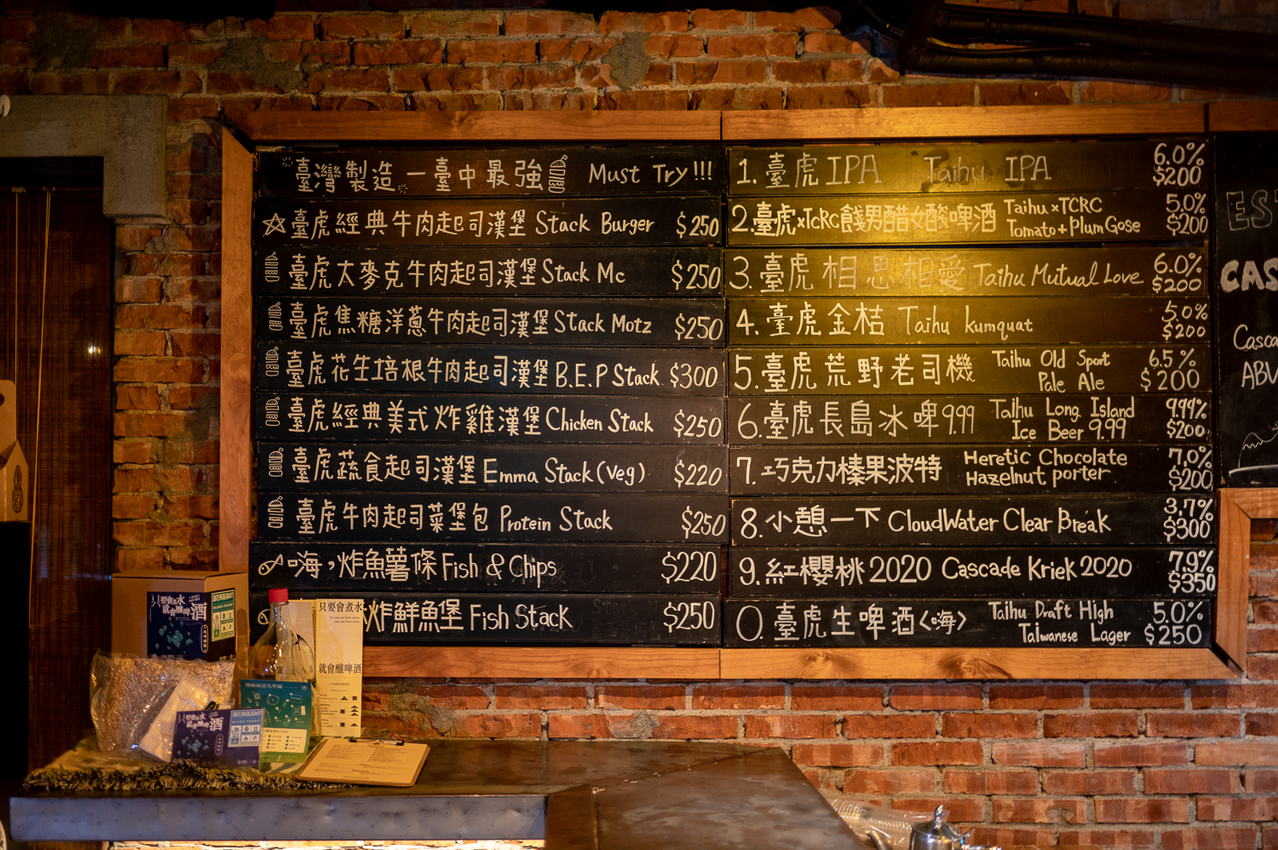 臺灣製造 一臺中最強 Must Try!!!
臺虎經典牛肉起司漢堡 Stack Burger $250
臺虎太麥克牛肉起司漢堡 Stack Mc $250
臺虎焦糖洋蔥牛肉起司漢堡 Stack Motz $250
臺虎花生培根牛肉起司漢堡 B.E.P Stack $300
臺虎經典美式炸雞漢堡 Chicken Stack $250
臺虎蔬食起司漢堡 Emma Stack (Veg) $220
臺虎牛肉起司菜堡包 Protein Stack $250
嗨,炸魚薯條 Fish & Chips $220
炸鮮魚堡 Fish Stack $250
1. 臺虎 IPA Taihu IPA 6.0% $200
2. 臺虎xTCRC 餞男醋女酸啤酒 Taihu x TCRC Tomato + Plum Gose 5.0% $200
3. 臺虎相思相愛 Taihu Mutual Love 6.0% $200
4. 臺虎金桔 Taihu kumquat 5.0% $200
5. 臺虎荒野老司機 Taihu Old Sport Pale Ale 6.5% $200
6. 臺虎長島冰啤9.99 Taihu Long Island Ice Beer 9.99 9.99% $200
7. 巧克力榛果波特 Heretic Chocolate Hazelnut porter 7.0% $200
8. 小憩一下 CloudWater Clear Break 3.7% $300
9. 紅櫻桃2020 Cascade Kriek 2020 7.9% $350
0. 臺虎生啤酒〈嗨〉 Taihu Draft High Taiwanese Lager 5.0% $250
ES
CAS
Casca
ABV
只要會煮水
就會釀啤酒
只要會煮水
就會釀啤酒